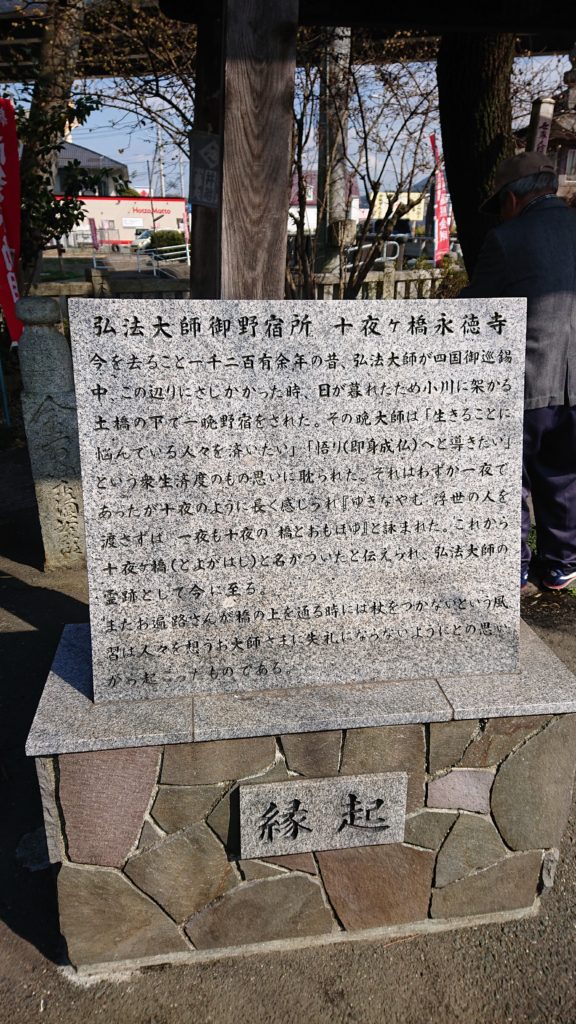 弘法大師御野宿所 十夜ヶ橋永徳寺
今を去ること一千二百有余年の昔、弘法大師が四国御巡錫
中、この辺りにさしかかった時、日が暮れたため小川に架かる
土橋の下で一晩野宿をされた。その晩大師は「生きることに
悩んでいる人々を済いたい」「悟り(即身成仏)へと導きたい」
という衆生済度のもの思いに耽られた。それはわずか一夜で
あったが十夜のように長く感じられ『ゆきなやむ 浮世の人を
渡さずば 一夜も十夜の 橋とおもほゆ』と詠まれた。これから
十夜ヶ橋(とよがはし)と名がついたと伝えられ、弘法大師の
霊跡として今に至る。
またお遍路さんが橋の上を通る時には杖をつかないという風
習は人々を想うお大師さまに失礼にならないようにとの思い
から起こったものである。
縁起
Hotto Motto